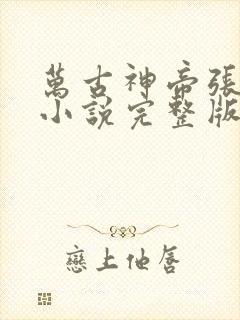 萬古神帝張
小說完整版
戀上他唇